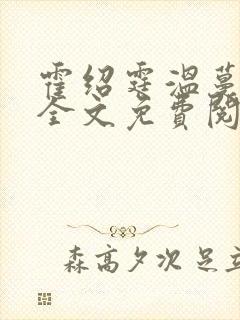 霍绍霆温蔓
全文免费阅
森高夕次 足立